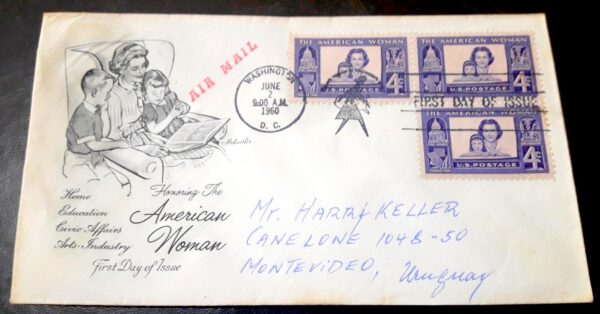 AIR MAIL
WASHINGTON
JUNE
2
9:00 A.M.
1960
D. C.
THE AMERICAN WOMAN
4¢
U.S. POSTAGE
THE AMERICAN WOMAN
4¢
U.S. POSTAGE
FIRST DAY OF ISSUE
THE AMERICAN WOMAN
4¢
U.S. POSTAGE
Home
Education
Civic Affairs
Arts-Industry
Honoring The
American
Woman
First Day of Issue
Mr. HARRY KELLER
CANELONE 1048-50
MONTEVIDEO, Uruguay